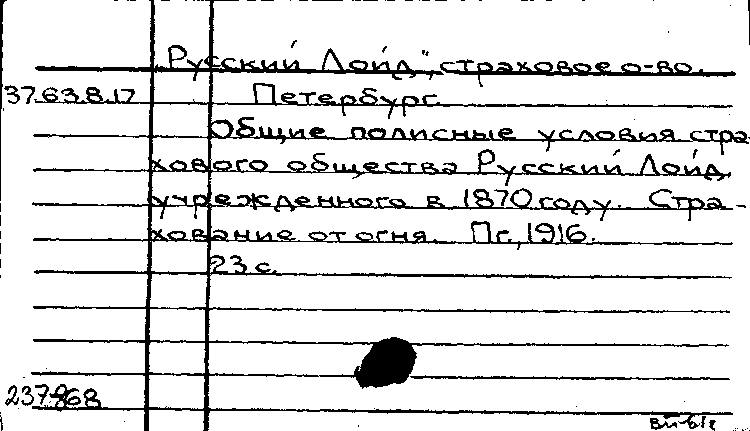 „Русский Лойд", страховое о-во.
37.63.8.17 Петербург.
Общие полисные условия стра-
хового общества Русский Лойд,
учрежденного в 1870 году. Стра-
хование от огня. Пг., 1916.
23 с.